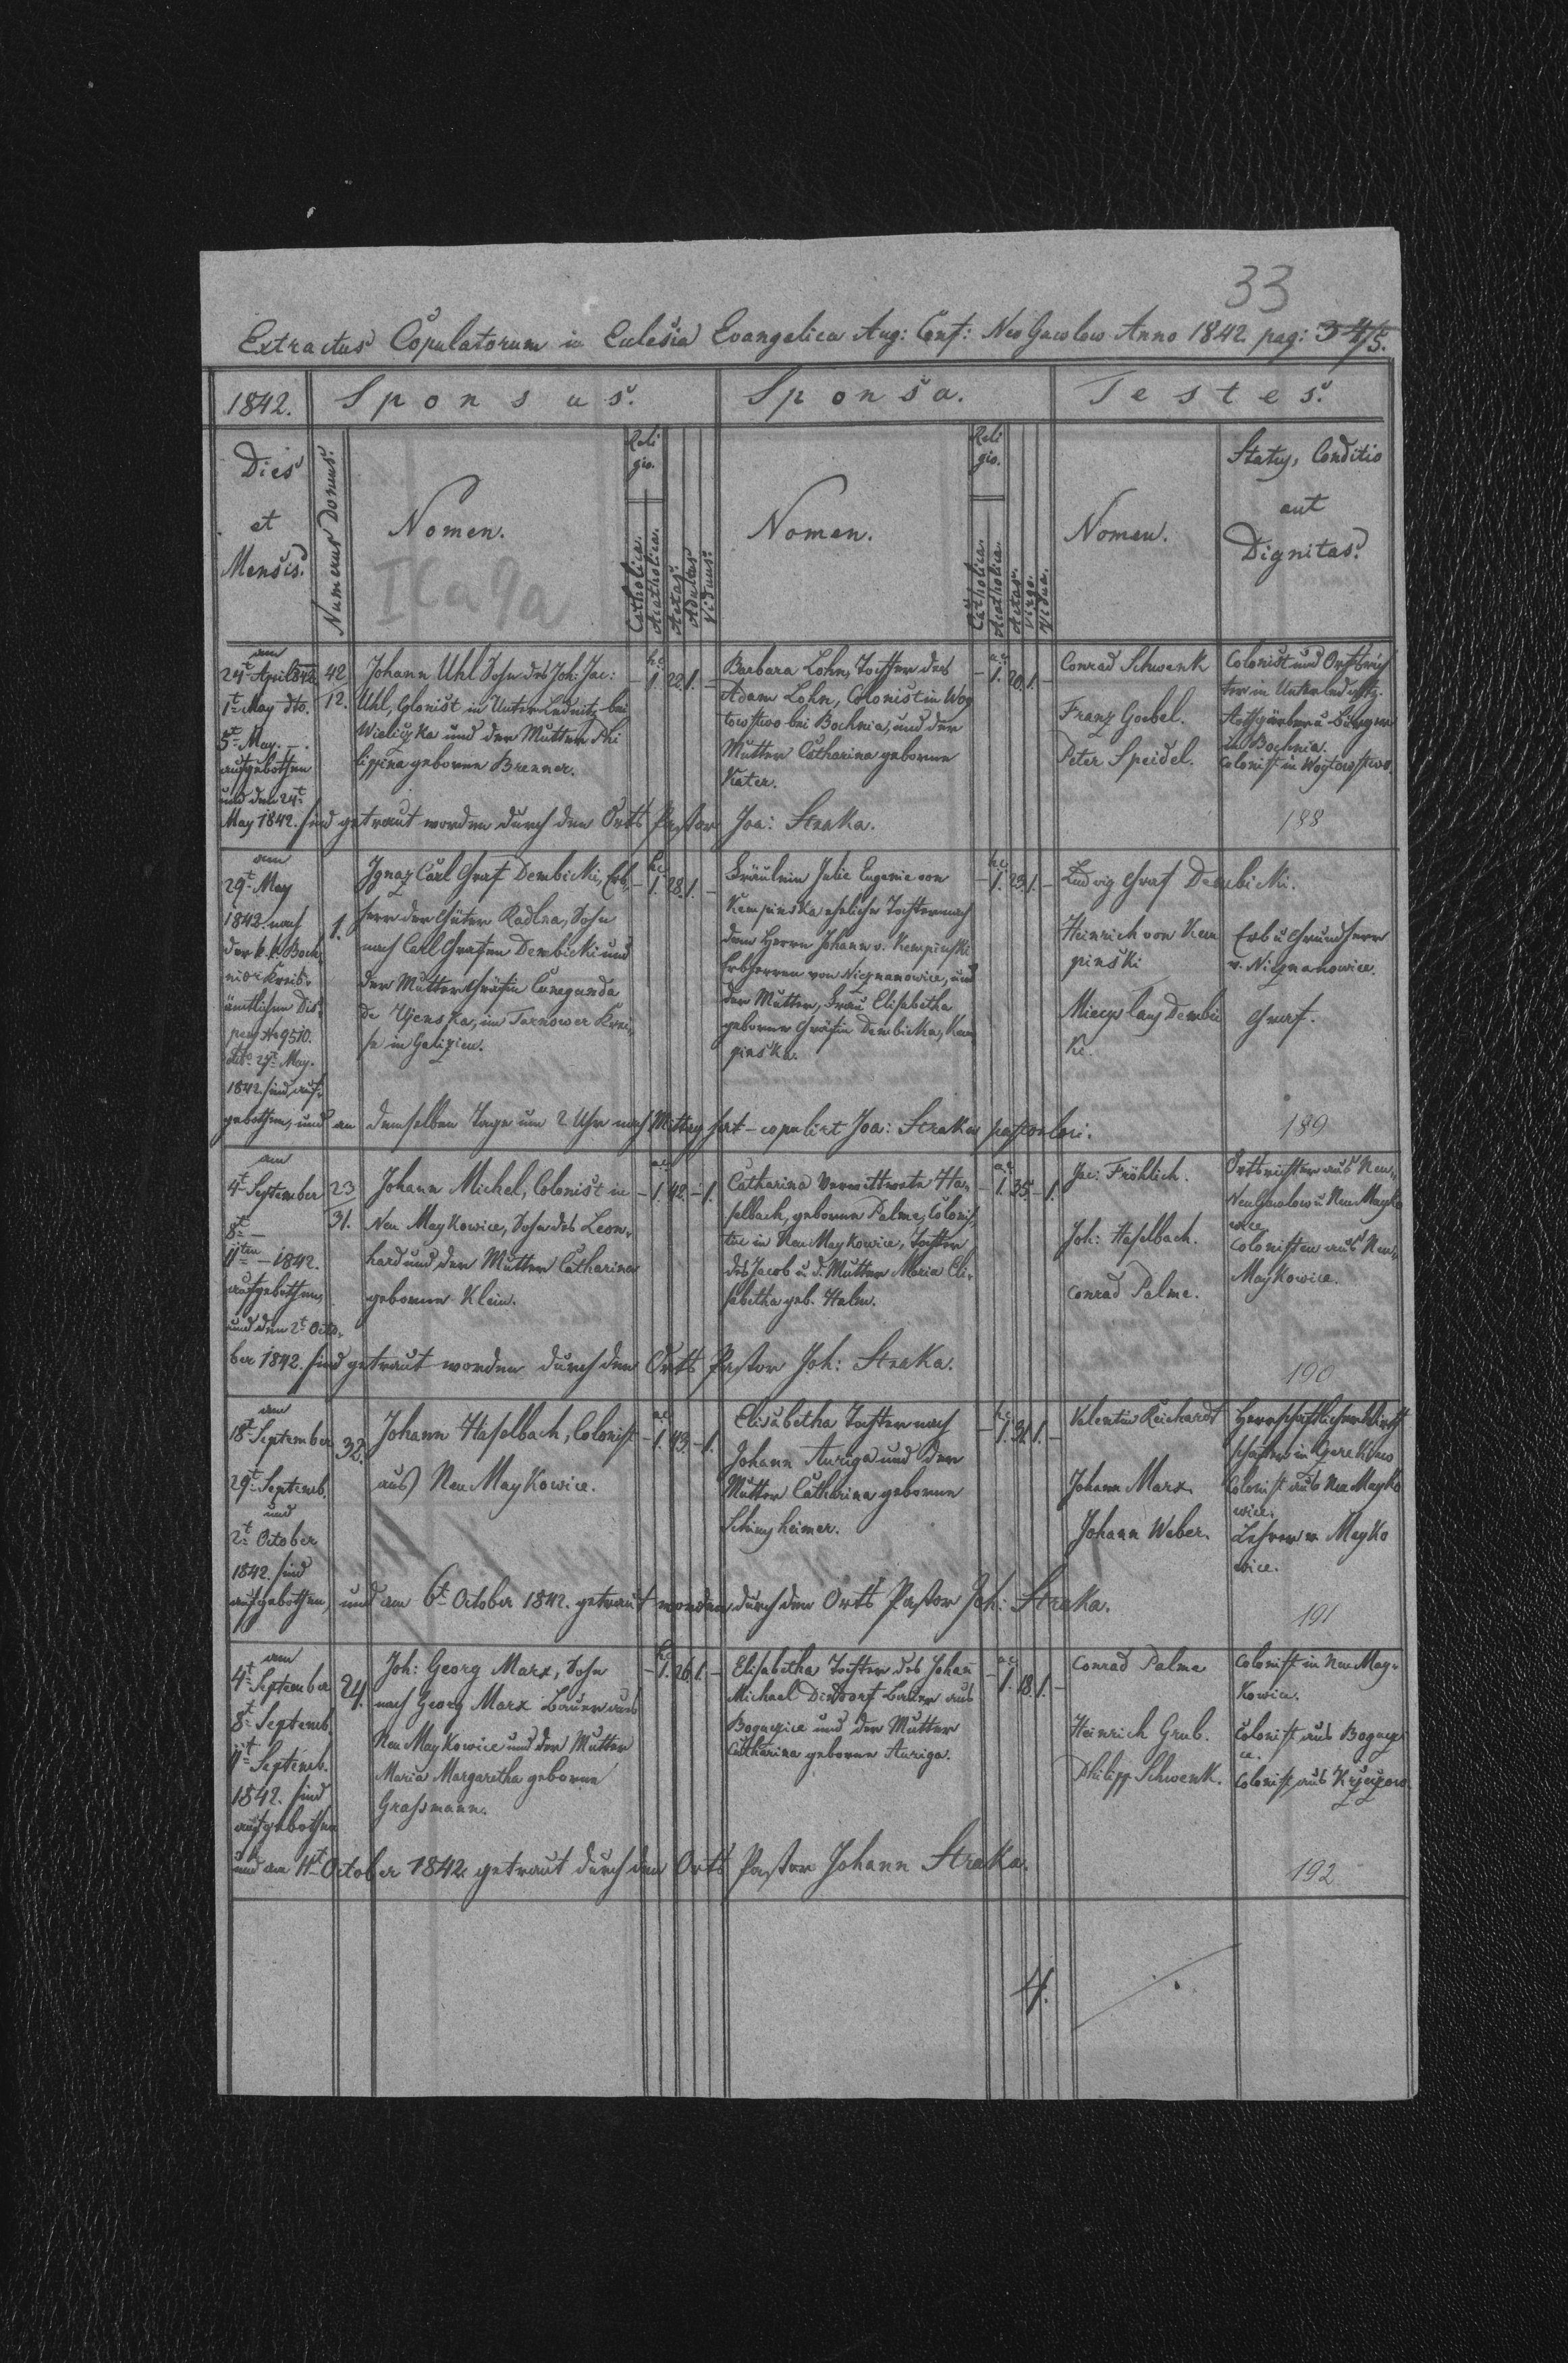 33
Extractus Copulatorum in Eclesia Evangelica Aug: Conf: Neo Gawlow Anno 1842. pag: 34/5.
1842. Sponsus. Sponsa. Testes.
Dies et Mensis.
Numerus Domus.
Nomen.
Religio.
Catholica.
Acatholica.
Aetas.
Adultus
Viduus.
Nomen.
Religio.
Catholica.
Acatholica.
Aetas.
Virgo.
Vidua.
Nomen.
Status, Conditio
aut
Dignitas.
am
24t April 842
1t May dto.
5t May. —
aufgebothen
und den 24t
42
12.
Johann Uhl Sohn des Joh: Jac:
Uhl, Colonist in Unter Lednitz bei
Wieliczka und der Mutter Phi
lippina geborne Brenner.
- 1. 22. 1. -
Barbara Lohn, Tochter des
Adam Lohn, Colonist in Woy
towstwo bei Bochnia, und der
Mutter Catharina geborne
Kater.
- 1. 20. 1. -
Conrad Schwenk
Franz Goebel.
Peter Speidel.
Colonist und Ortsrich
ter in Unterlednitz.
Rothgärber u Bürger
in Bochnia.
Colonist in Woytowstwo.
May 1842. sind getraut worden durch den Orts Pastor Joa: Straka.
188
am
29t May
1842. nach
der k.k. Boch
nier Kreis-
ämtlichen Dis-
pens No 9510.
dto 29t May.
1842. sind auf-
1.
Ignaz Carl Graf Dembicki, Erb-
herr der Güter Radlna, Sohn
nach Carl Grafen Dembicki und
der Mutter Gräfin Cunegunda
de im Tarnower Krei-
se in Galizien.
- 1. 28. 1. -
Fräulein Julie Eugenie von
Kempinska eheliche Tochter nach
dem Herrn Johann v. Kempinski
Erbherren von Nieznanowice, und
der Mutter, Frau Elisabetha
geborne Gräfin Dembicka, Kem
pinska.
- 1. 23. 1. -
Ludwig Graf Dembicki.
Heinrich von Kem
pinski
Miecyslaus Dembic
ki.
Erb u Grundherr
v. Nieznanowice.
Graf.
gebothen, und an demselben Tage um 2 Uhr nach Mittag hat copulirt Joa: Straka pastor loci.
189
am
4t September
8t —
11ten — 1842.
aufgebothen,
und den 2t Octo-
23
31.
Johann Michel, Colonist in
Neu Maykowice, Sohn des Leon-
hard und der Mutter Catharina
geborne Klein.
- 1. 42. - 1.
Catharina verwittwete Ha-
selbach, geborne Palme, Colonis-
tin in Neu Maykowice, Tochter
des Jacob u. d. Mutter Maria Eli-
sabetha geb. Halm.
- 1. 35. - 1.
Jac: Fröhlich.
Joh: Haselbach.
Conrad Palme.
Ortsrichter aus Neu-
Neu Gawlow u Neu Mayko
wice.
Colonisten aus Neu-
Maykowice.
ber 1842. sind getraut worden durch den Orts Pastor Joh: Straka.
190
am
18t September
29t Septemb.
und
2t October
1842. sind
32.
Johann Haselbach, Colonist
aus Neu Maykowice.
- 1. 43. - 1.
Elisabetha Tochter nach
Johann Auriga und der
Mutter Catharina geborne
- 1. 31. 1. -
Valentin Reichardt
Johann Marx
Johann Weber.
Herrschaftlicher
Colonist aus Neu Mayko
wice.
Lehrer v. Mayko
wice.
aufgebothen, und am 6t October 1842. getraut worden durch den Orts Pastor Joh: Straka.
191
am
4t September
8t Septemb.
11t Septemb.
1842. sind
aufgebothen
24.
Joh: Georg Marx, Sohn
nach Georg Marx Bauer aus
Neu Maykowice und der Mutter
Maria Margaretha geborne
Grassmann.
- 1. 26. 1. -
Elisabetha Tochter des Johan
Michael Disdorf Bauer aus
Bogucice und der Mutter
Catharina geborne Auriga.
- 1. 18. 1. -
Conrad Palme
Heinrich Grub.
Philipp Schwenk.
Colonist in Neu May-
kowice.
Colonist aus Boguci
ce.
Colonist aus
und am 11t October 1842 getraut durch den Orts Pastor Johann Straka.
192
4.